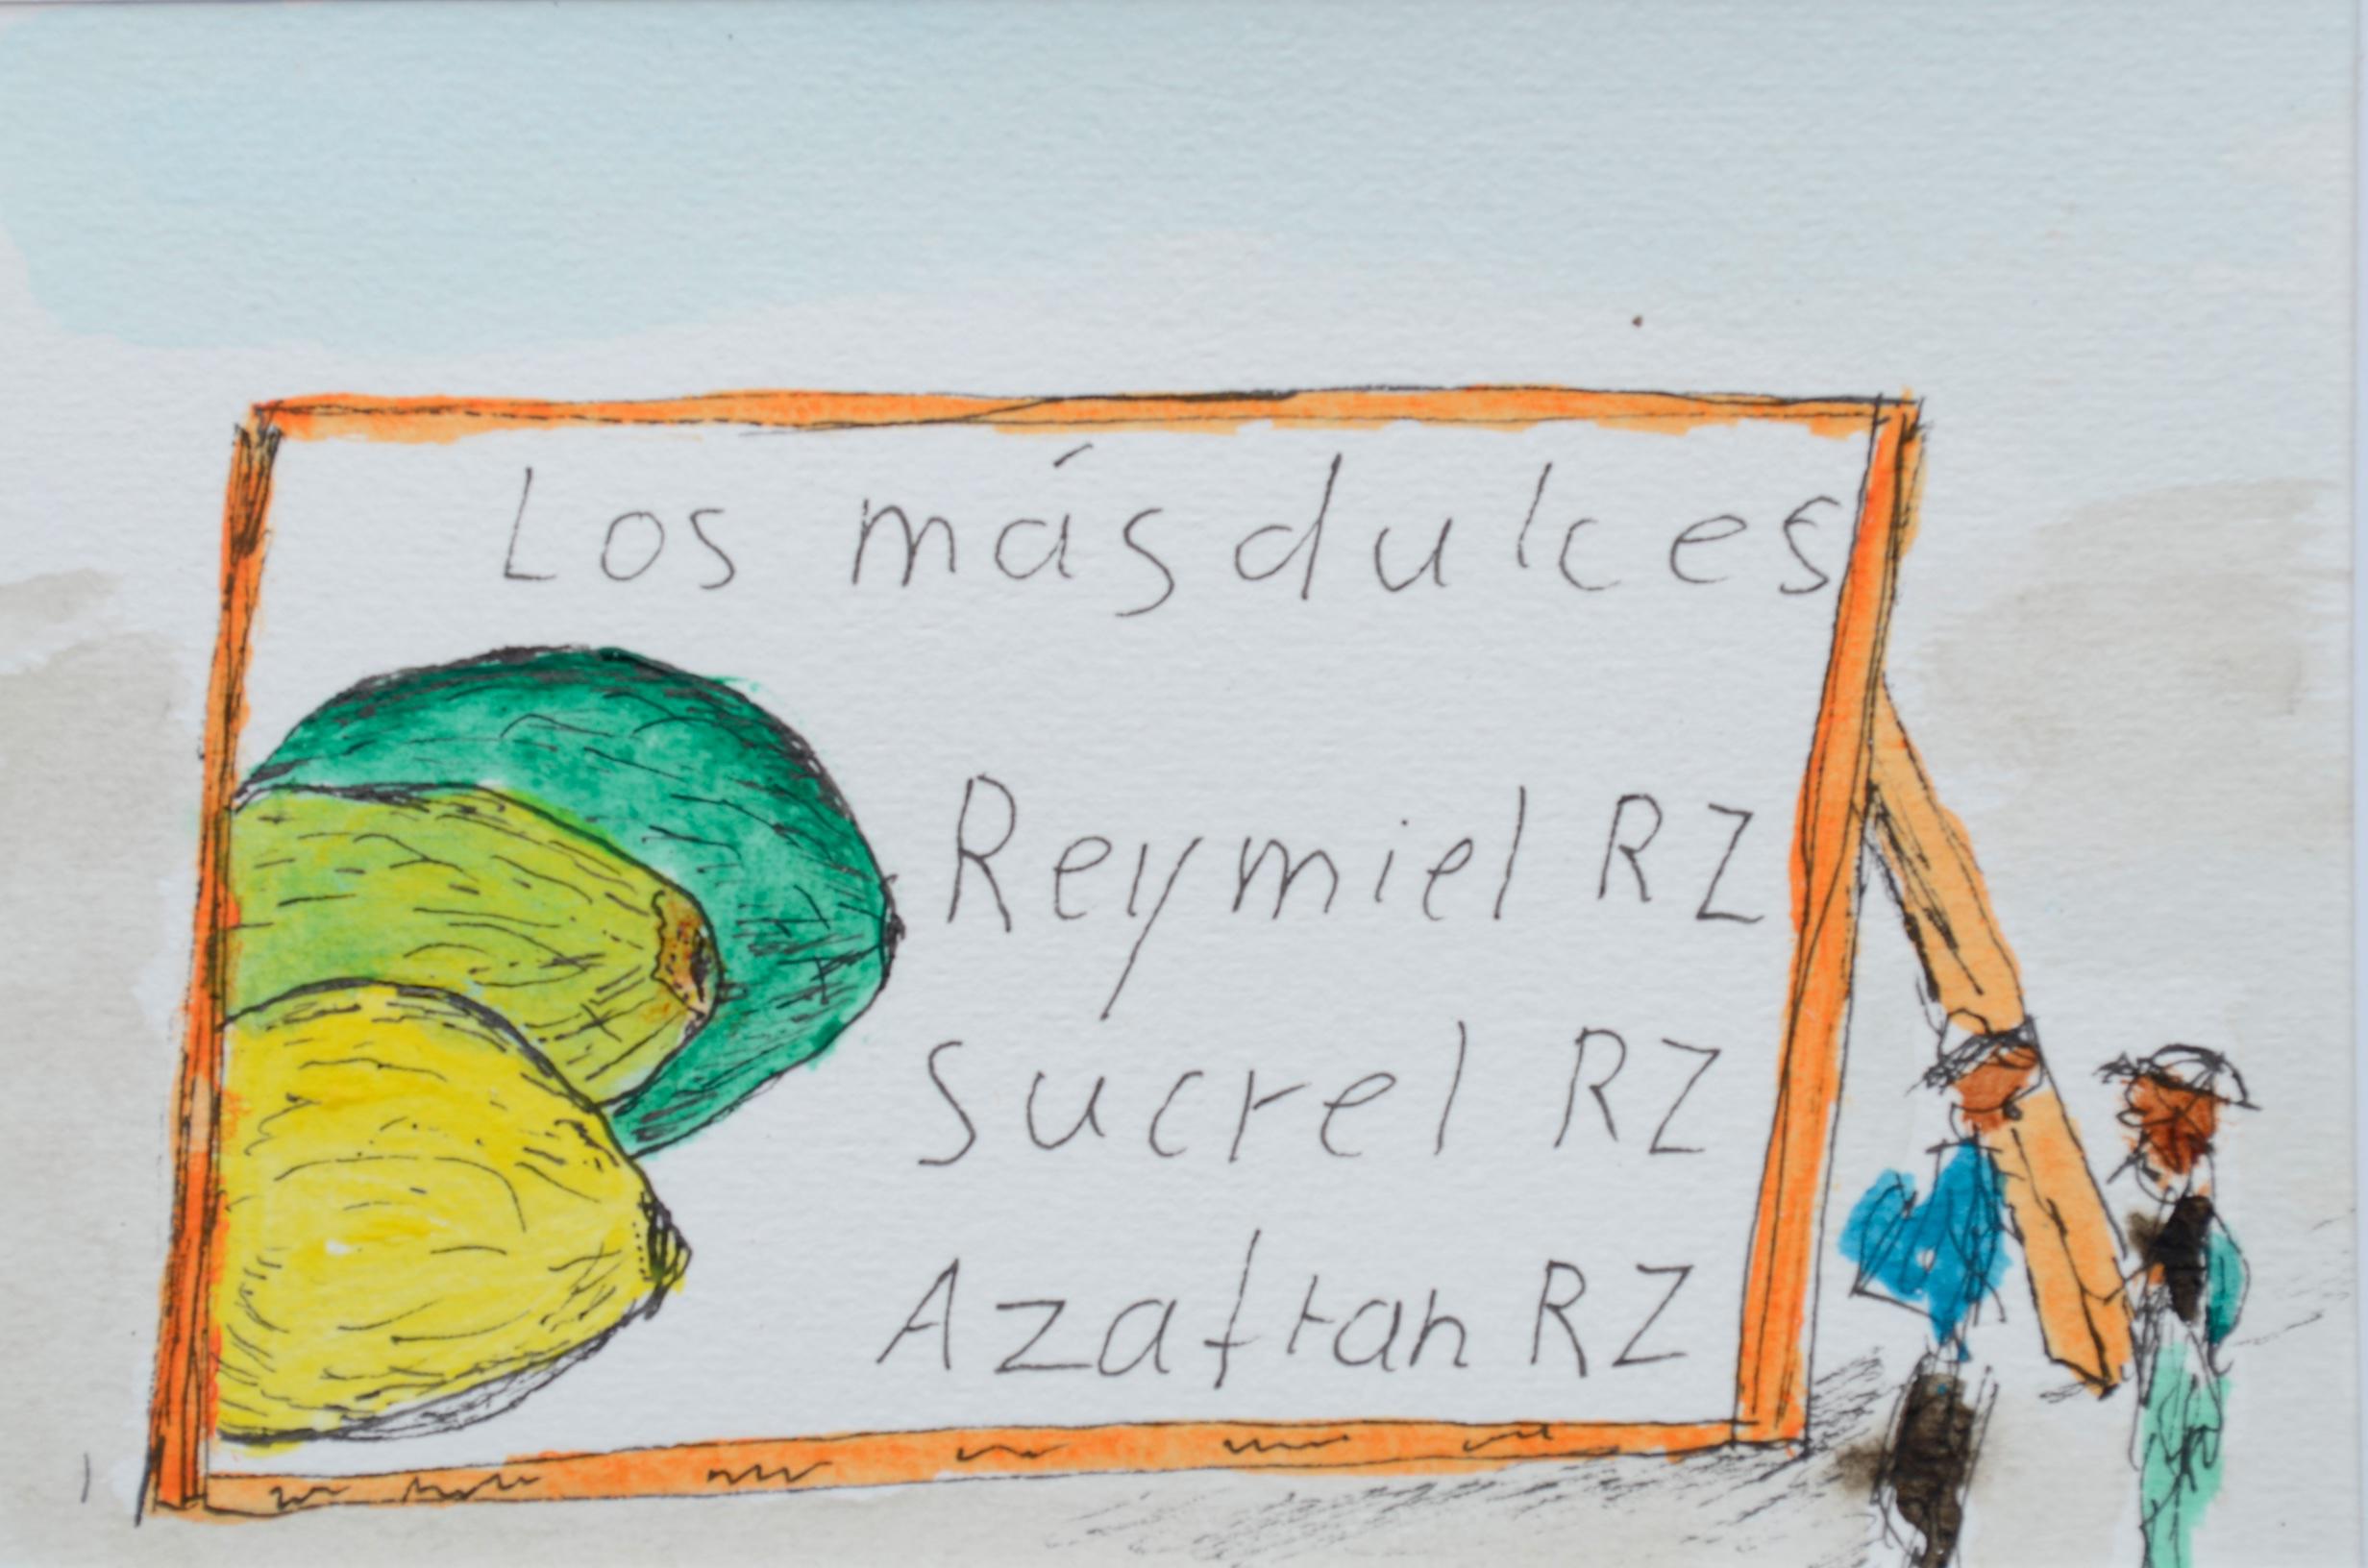 Los más dulces
Reymiel RZ
Sucrel RZ
Azafran RZ